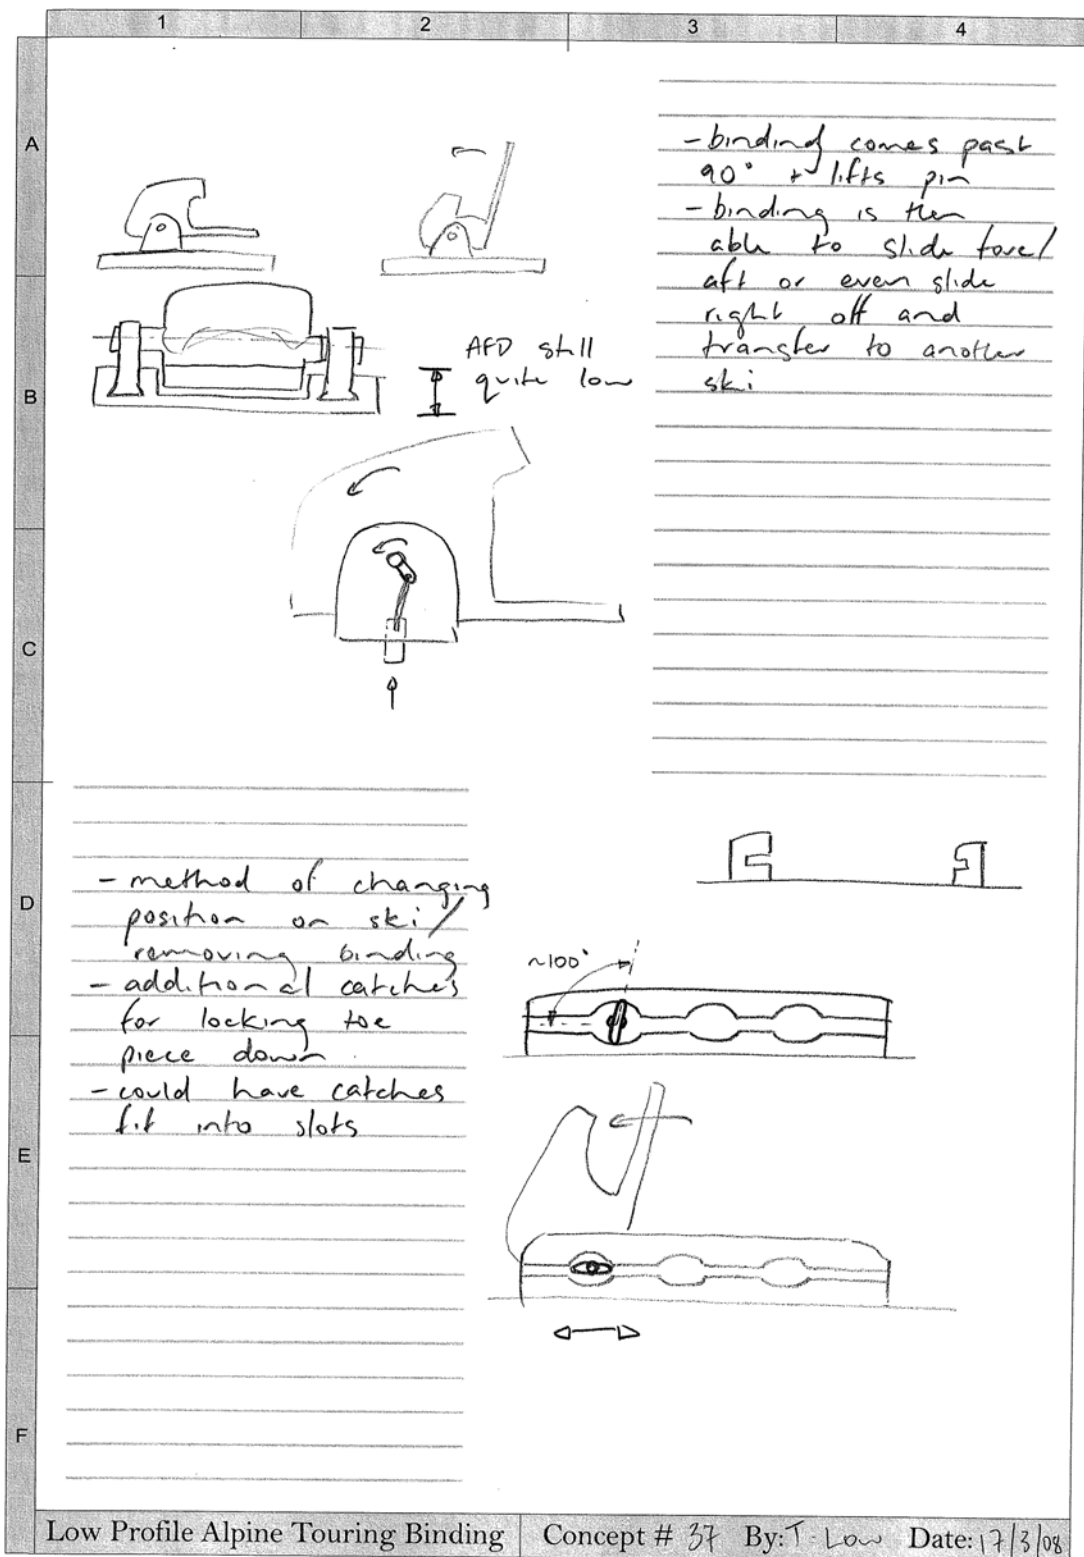 1 2 3 4
A
B
C
D
E
F
- binding comes past
90° + lifts pin
- binding is then
able to slide fore/
aft or even slide
right off and
transfer to another
ski
AFD still
quite low
- method of changing
position on ski/
removing binding
- additional catches
for locking toe
piece down
- could have catches
fit into slots
~100°
Low Profile Alpine Touring Binding Concept # 37 By: T. Low Date: 17/3/08